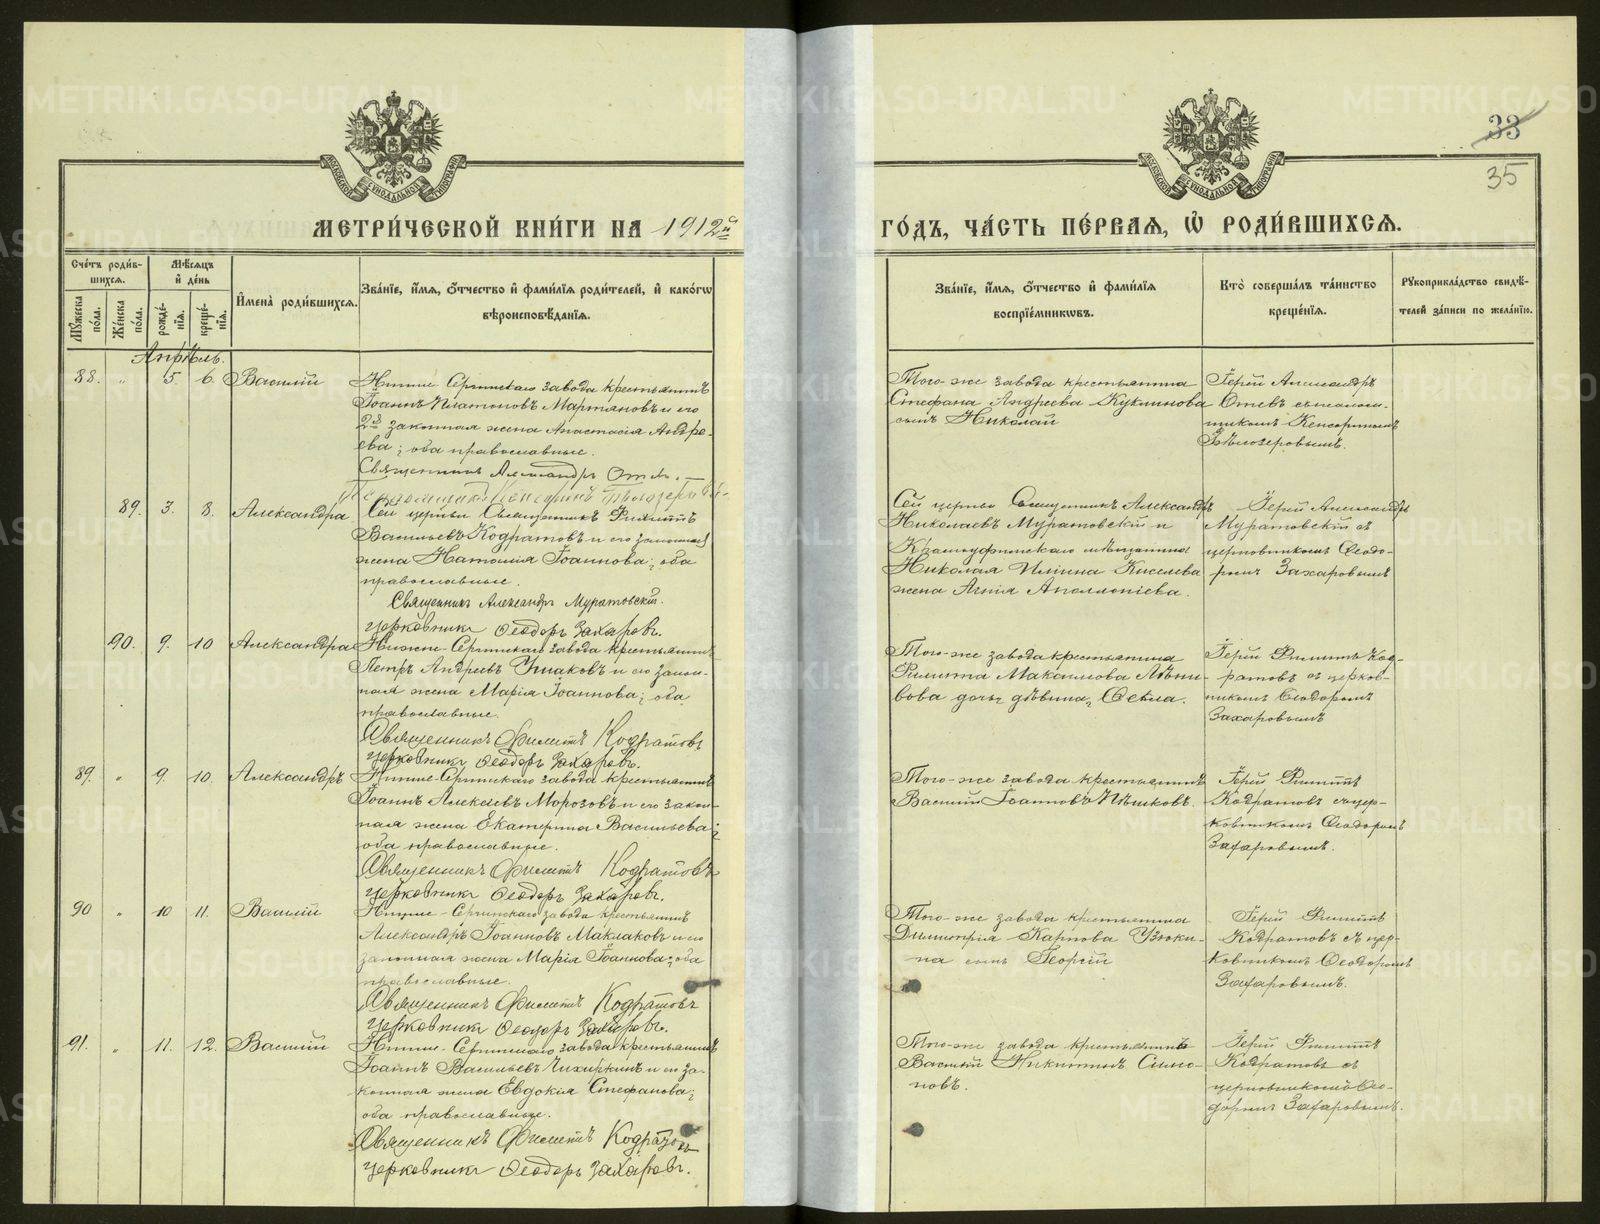 33
35
МЕТРИ́ЧЕСКОЙ КНИ́ГИ НА 1912й
ГО́ДЪ, ЧА́СТЬ ПЕ́РВАЯ, Ѽ РОДИ́ВШИХСЯ.
Сче́тъ роди́в-
шихся.
Мѣ́сяцъ
и҆ де́нь
Мꙋ́жеска
по́ла.
Же́нска
по́ла.
рожде́-
нїя.
креще́-
нїя.
И҆мена̀ роди́вшихся.
Зва́нїе, и҆́мя, ѻ҆́тчество и҆ фами́лїя роди́телей, и҆ како́гѡ
вѣроисповѣ́данїя.
Зва́нїе, и҆́мя, ѻ҆́тчество и҆ фами́лїя
воспрїе́мникѡвъ.
Кто̀ соверша́лъ та́инство
креще́нїя.
Рꙋкоприкла́дство свидѣ́-
телей за́писи по жела́нїю.
Апрѣль.
88. " 5. 6. Василій
Нижне-Сергинскаго завода крестьянинъ
Іоаннъ Платоновъ Мартяновъ и его
2я законная жена Анастасія Андре-
ева; оба православные.
Священникъ Александръ
Того-же завода крестьянина
Стефана Андреева Куклинова
сынъ Николай
Іерей Александръ
псалом-
щикомъ Кенсориномъ
Бѣлозеровымъ.
89. 3. 8. Александра
Сей церкви Священникъ Филиппъ
Васильевъ Кодратовъ и его законная
жена Наталия Іоаннова; оба
православные.
Священникъ Александръ Муратовскій.
Церковникъ Ѳеодоръ Захаровъ.
Сей церкви Священникъ Александръ
Николаевъ Муратовскій и
Красноуфимскаго мѣщанина
Николая Ильина Киселева
жена Агнія Аполлоніева.
Іерей Александръ
Муратовскій съ
церковникомъ Ѳеодо-
ромъ Захаровымъ
90. 9. 10 Александра
Нижне-Сергинскаго завода крестьянинъ
Петръ Андреевъ Ушаковъ и его закон-
ная жена Марія Іоаннова; оба
православные.
Священникъ Филиппъ Кодратовъ
Церковникъ Ѳеодоръ Захаровъ.
Того-же завода крестьянина
Филиппа Максимова
дочь дѣвица, Ѳекла.
Іерей Филиппъ Код-
ратовъ съ церков-
никомъ Ѳеодоромъ
Захаровымъ
89. " 9. 10. Александръ
Нижне-Сергинскаго завода крестьянинъ
Іоаннъ Алексѣевъ Морозовъ и его закон-
ная жена Екатерина Васильева;
оба православные.
Священникъ Филиппъ Кодратовъ
Церковникъ Ѳеодоръ Захаровъ.
Того-же завода крестьянинъ
Василій Іоанновъ Пѣшковъ.
Іерей Филиппъ
Кодратовъ съ цер-
ковникомъ Ѳеодоромъ
Захаровымъ.
90 " 10 11. Василій
Нижне-Сергинскаго завода крестьянинъ
Александръ Іоанновъ Маклаковъ и его
законная жена Марія Іоаннова; оба
православные.
Священникъ Филиппъ Кодратовъ
Церковникъ Ѳеодоръ Захаровъ.
Того-же завода крестьянина
Димитрія Карпова Узюки-
на сынъ Георгій
Іерей Филиппъ
Кодратовъ съ цер-
ковникомъ Ѳеодоромъ
Захаровымъ.
91. " 11. 12. Василій
Нижне-Сергинскаго завода крестьянинъ
Іоаннъ Васильевъ Чихиркинъ и его за-
конная жена Евдокія Стефанова;
оба православные.
Священникъ Филиппъ Кодратовъ
Церковникъ Ѳеодоръ Захаровъ.
Того-же завода крестьянинъ
Василій Никитинъ Симо-
новъ.
Іерей Филиппъ
Кодратовъ съ
церковникомъ Ѳео-
доромъ Захаровымъ.
METRIKI.GASO-URAL.RU